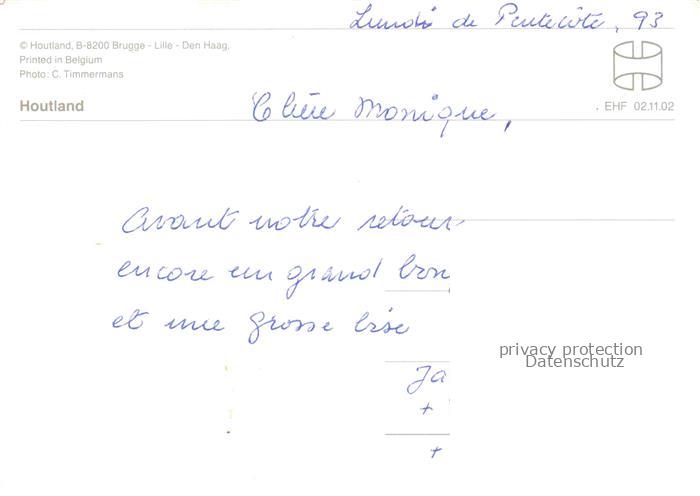 Lundi de Pentecôte, 93
© Houtland, B-8200 Brugge - Lille - Den Haag.
Printed in Belgium
Photo: C. Timmermans
Houtland
EHF 02.11.02
Chère Monique,
Avant notre retour
encore un grand bon
et une grosse bise
privacy protection
Datenschutz
Ja
+
+